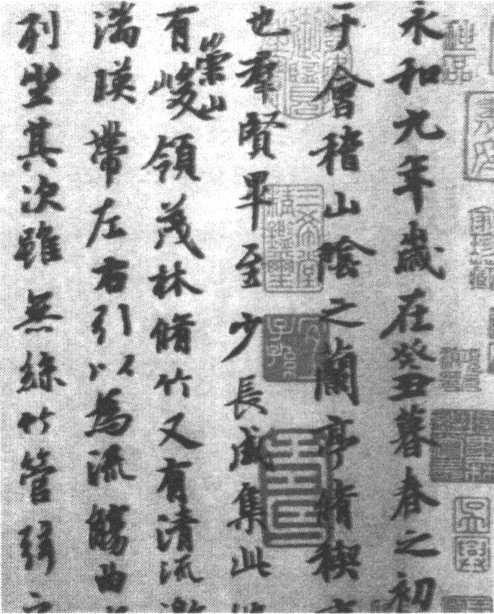 永和九年歲在癸丑暮春之初
于會稽山陰之蘭亭脩稧
也羣賢畢至少長咸集此
有崇山峻領茂林脩竹又有清流
湍暎帶左右引以為流觴曲
列坐其次雖無絲竹管弦
三希堂
精鑑璽
宜子孫